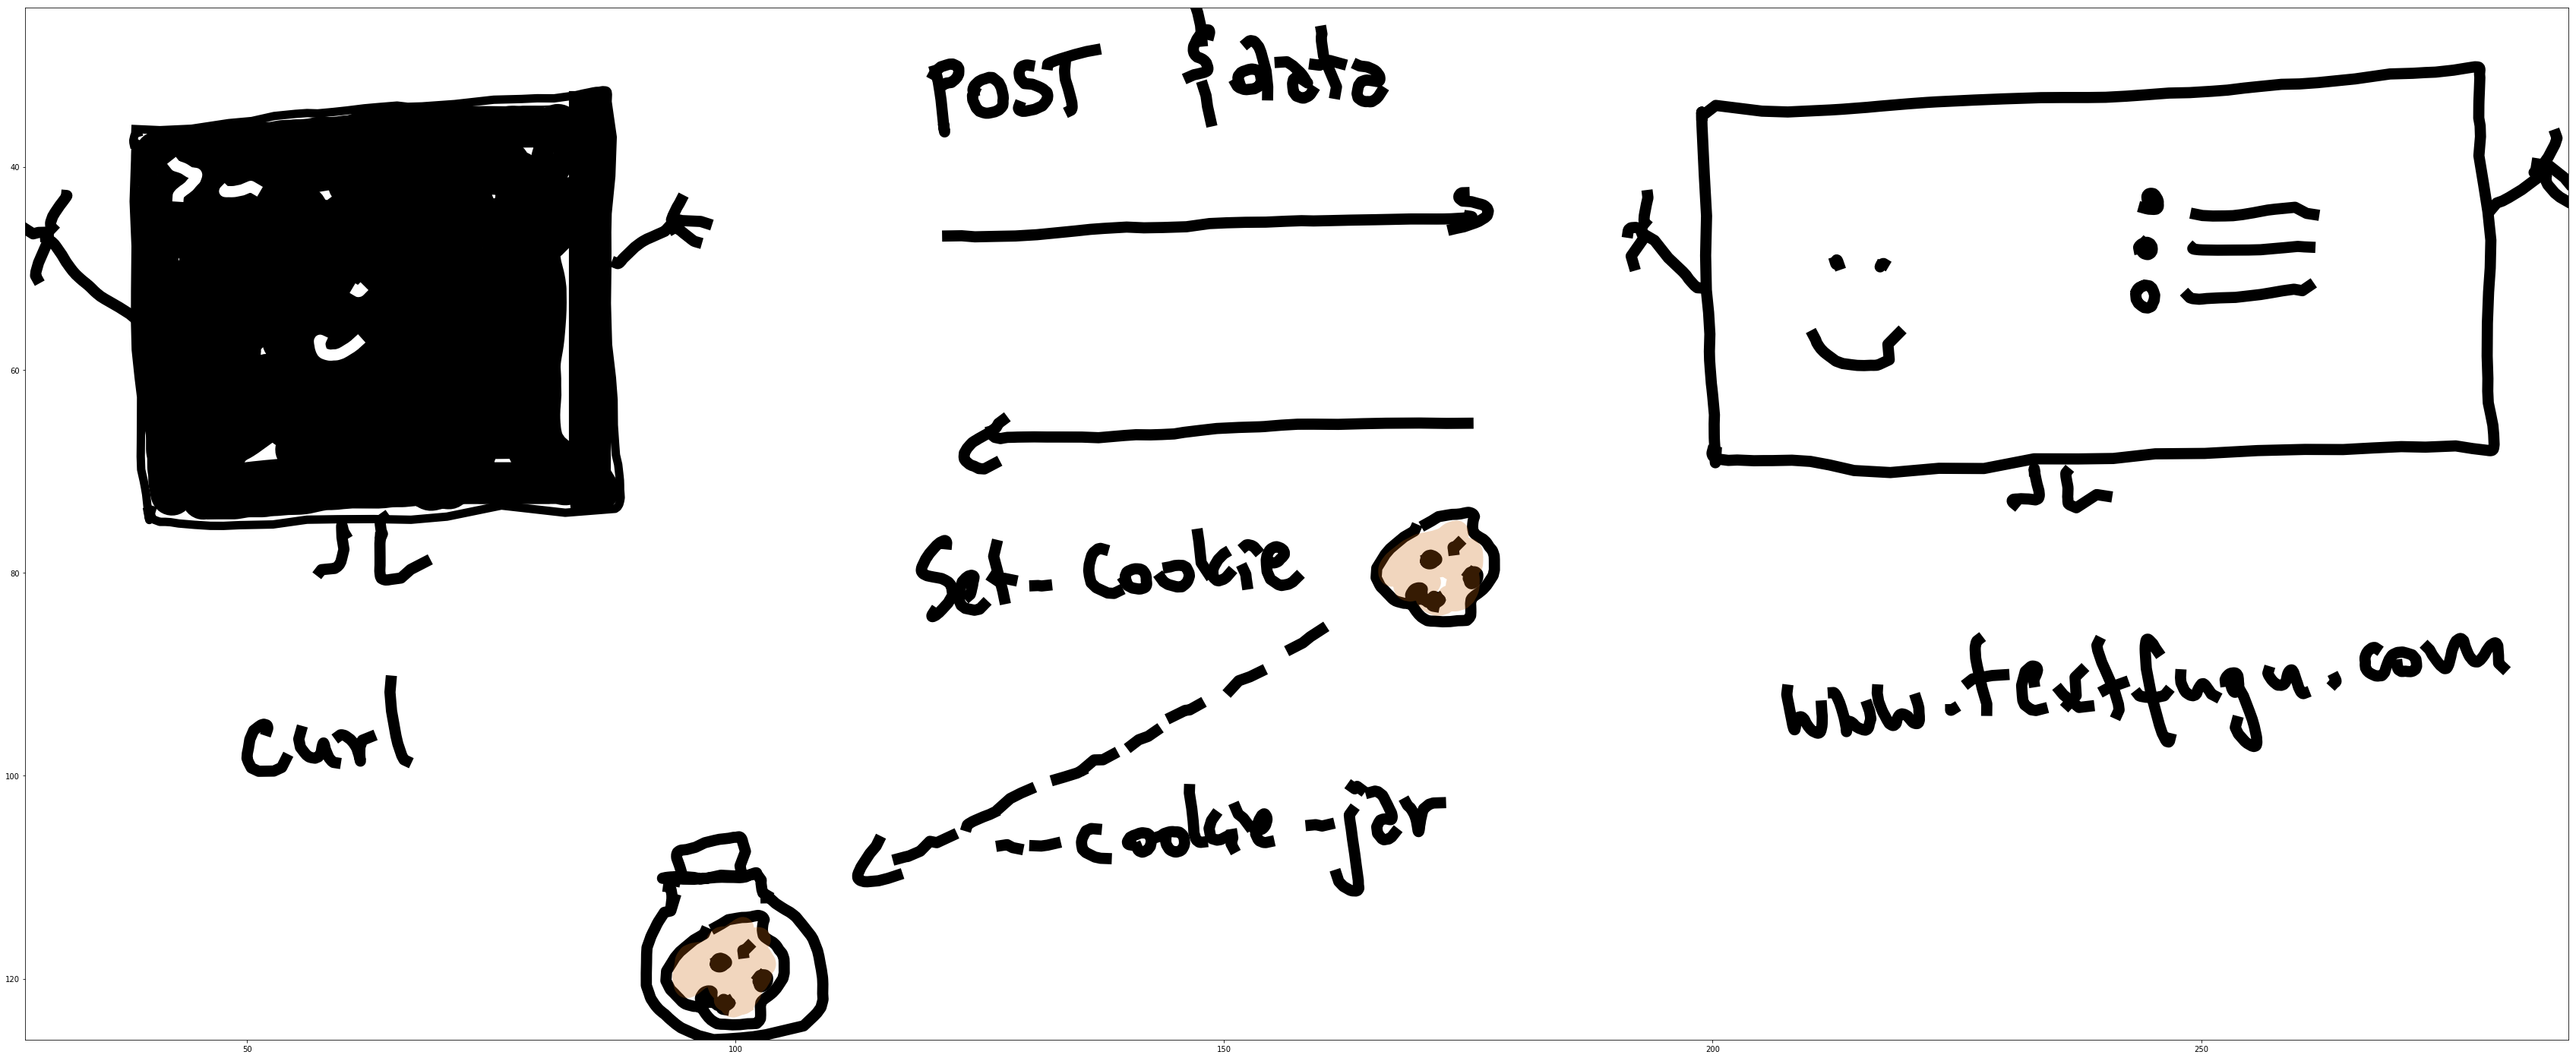 POST $data
>_
Set-Cookie
www.textfugu.com
curl
--cookie-jar
40
60
80
100
120
50 100 150 200 250